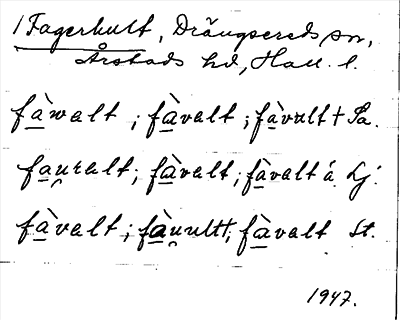 1 Fagerhult, Drängsereds sn,
Årstads hd, Hall. l.
fàwalt ; fàvalt ; fàvult + Sa.
fau̯ralt ; fàvalt ; fàvalt á Lj.
fàvalt ; fàu̯ultt, fàvalt St.
1947.